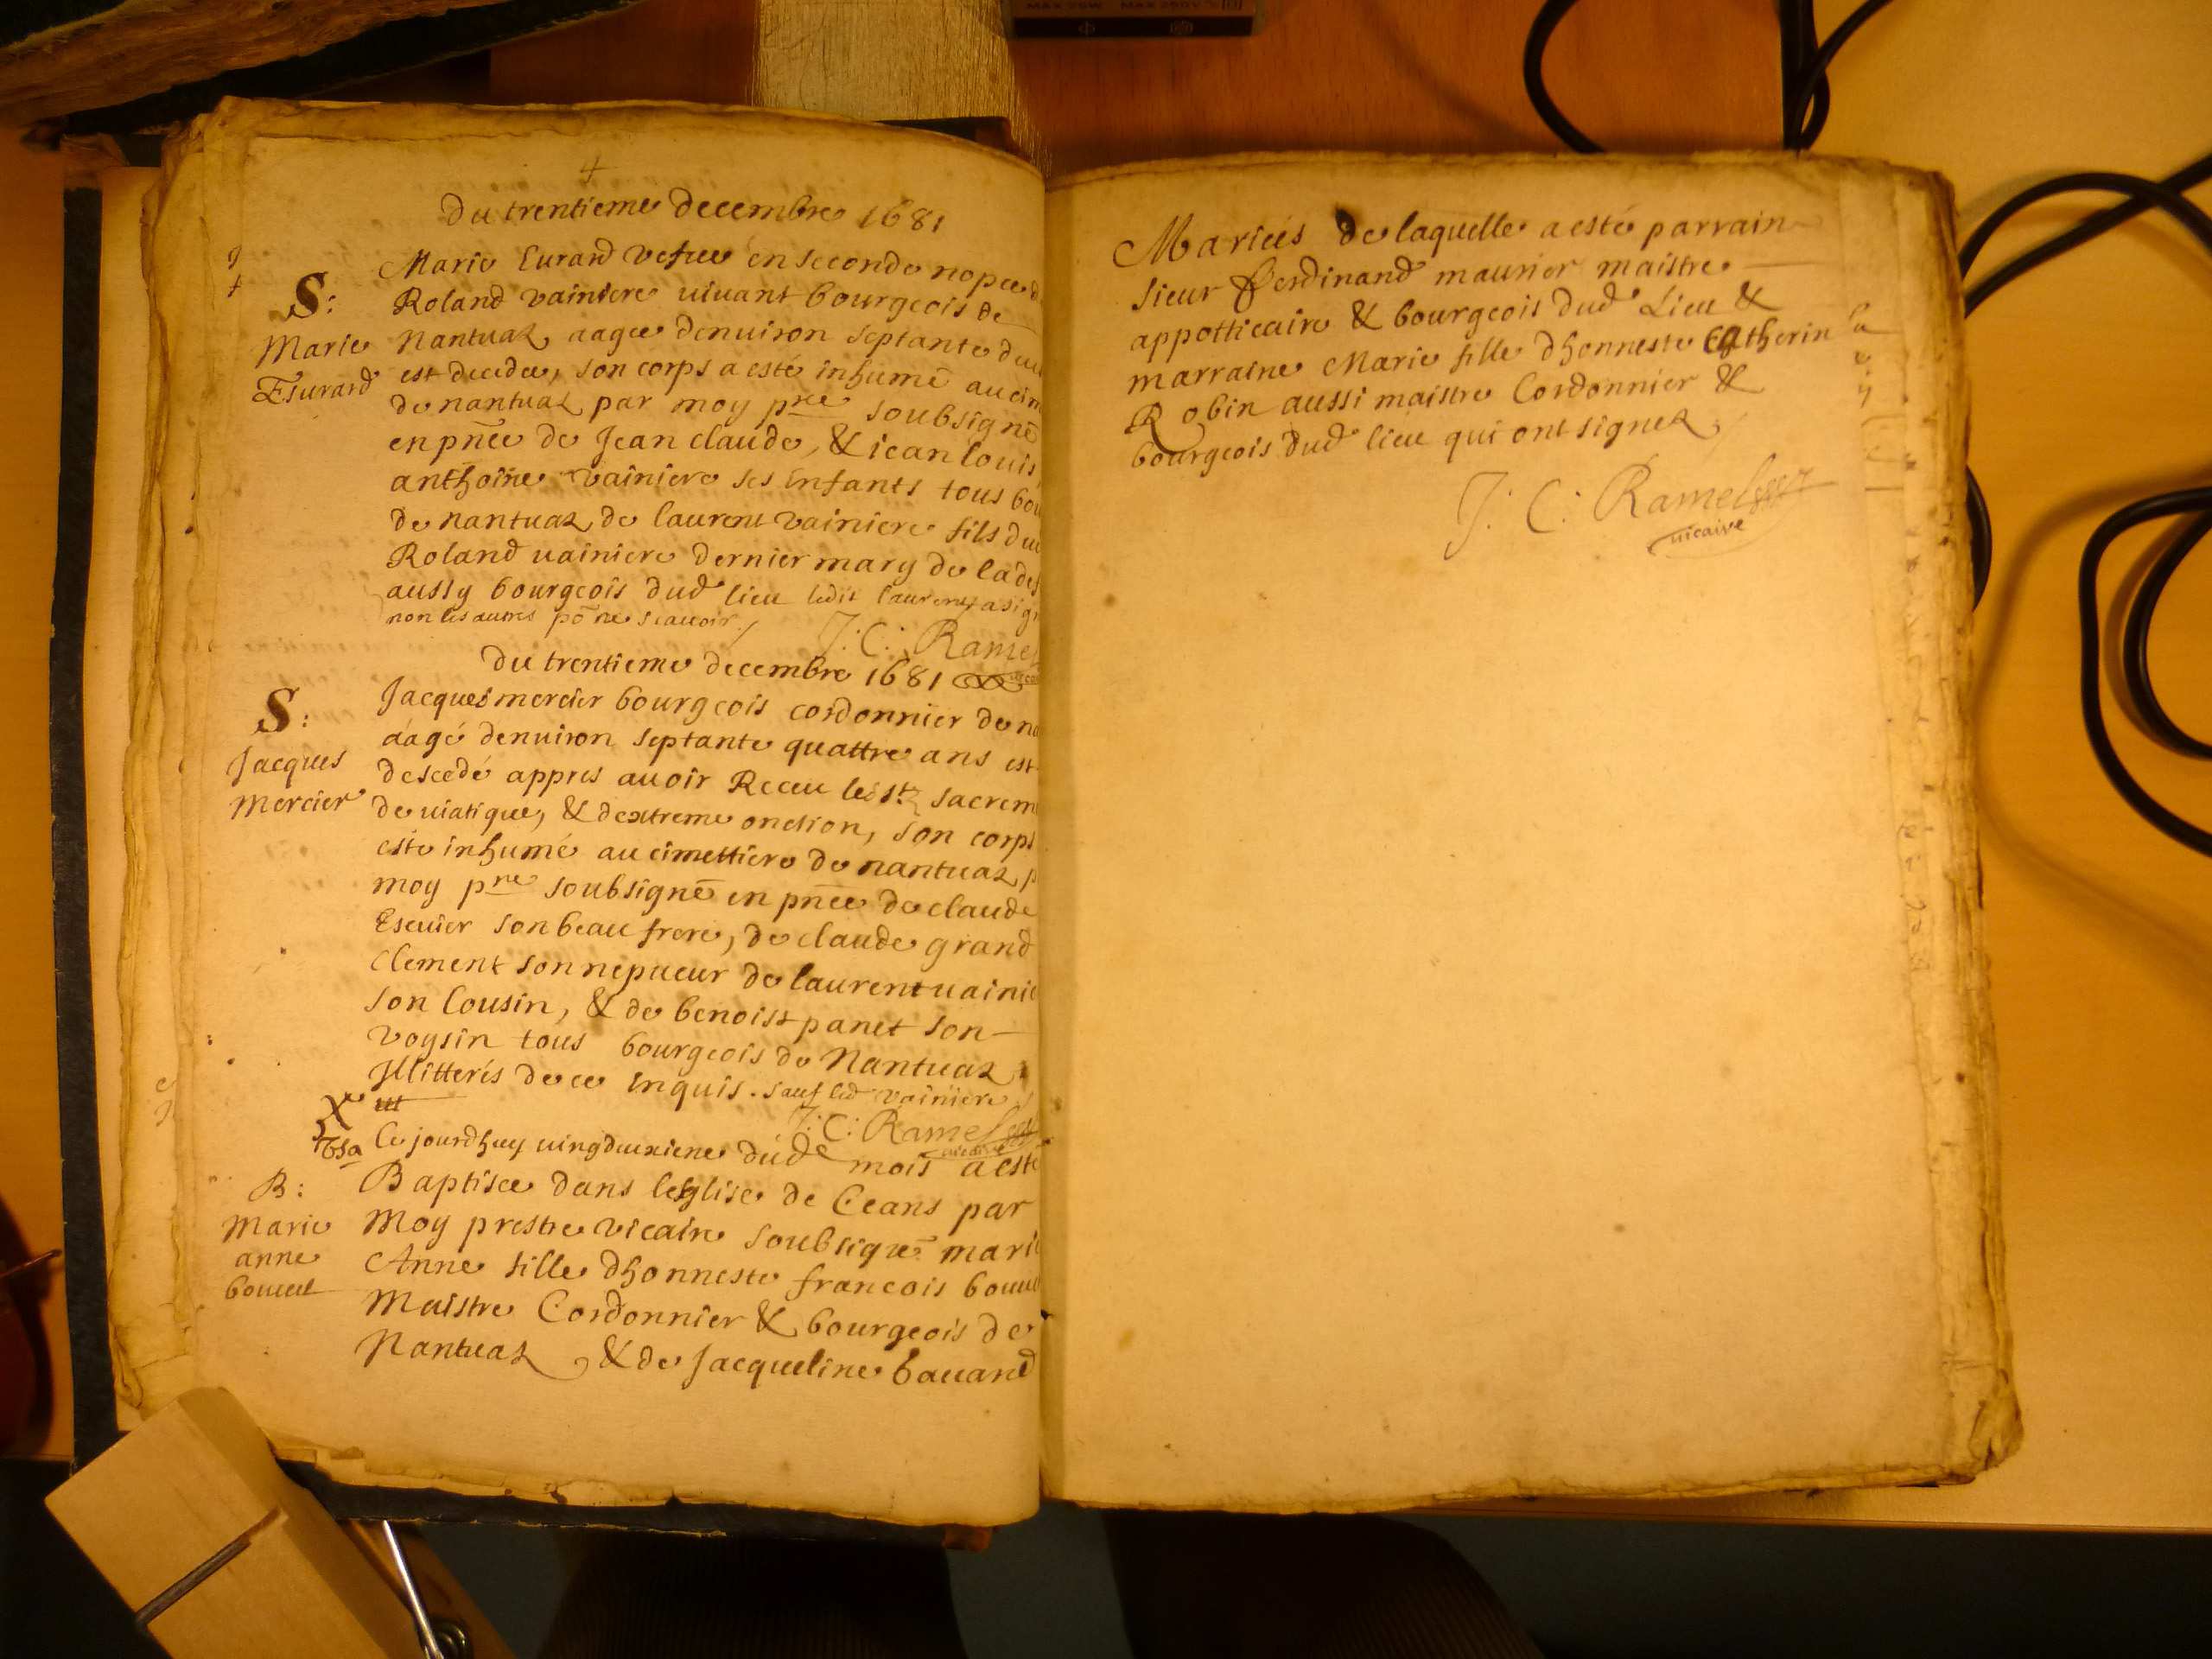 Du trentieme decembre 1681
S:
Marie
Esurard
Marie Eurard vefue en seconde nopce d
Roland vainiere uiuant bourgeois de
Nantuaz, aagee denuiron septante deu
est decedee, son corps a esté inhumé au cim
de nantuaz par moy pre soubsigné
en pnce de Jean claude, & jean louis,
anthoine vainiere ses Enfants tous bou
de nantuaz, de laurent vainiere fils du
Roland uainiere dernier mary de lade
aussy bourgeois dud lieu ledit laurent a sign
non les autres po ne scauoir
J: C: Ramel
Du trentieme decembre 1681
S:
Jacques
Mercier
Jacques mercier bourgeois cordonnier de na
aagé denuiron septante quattre ans est
descedé appres auoir Receu les sts sacrem
de uiatique, & dextreme onction, son corps
esté inhumé au cimettiere de nantuaz p
moy pre soubsigné en pnce de claude
Escuier son beau frere, de claude grand
Clement son nepueur de laurent uainie
son Cousin, & de benoist panet son
voysin tous bourgeois de Nantuaz
Jllitterés de ce Enquis. sauf led vainiere
J: C: Ramel
vicaire
B:
Marie
anne
bouuet
Ce jourdhuy uingdeuxieme dud mois a esté
Baptisee dans leglise de Ceans par
Moy prestre vicaire soubsigné marie
Anne fille dhonneste francois bouue
Maistre Cordonnier & bourgeois de
Nantuaz, & de Jacqueline bauand
Mariés de laquelle a esté parrain
sieur Ferdinand maurier maistre
appotticaire & bourgeois dud Lieu & la
marraine Marie fille dhonneste Catherin
Robin aussi maistre Cordonnier &
bourgeois dud lieu qui ont signez
J: C: Ramel
uicaire